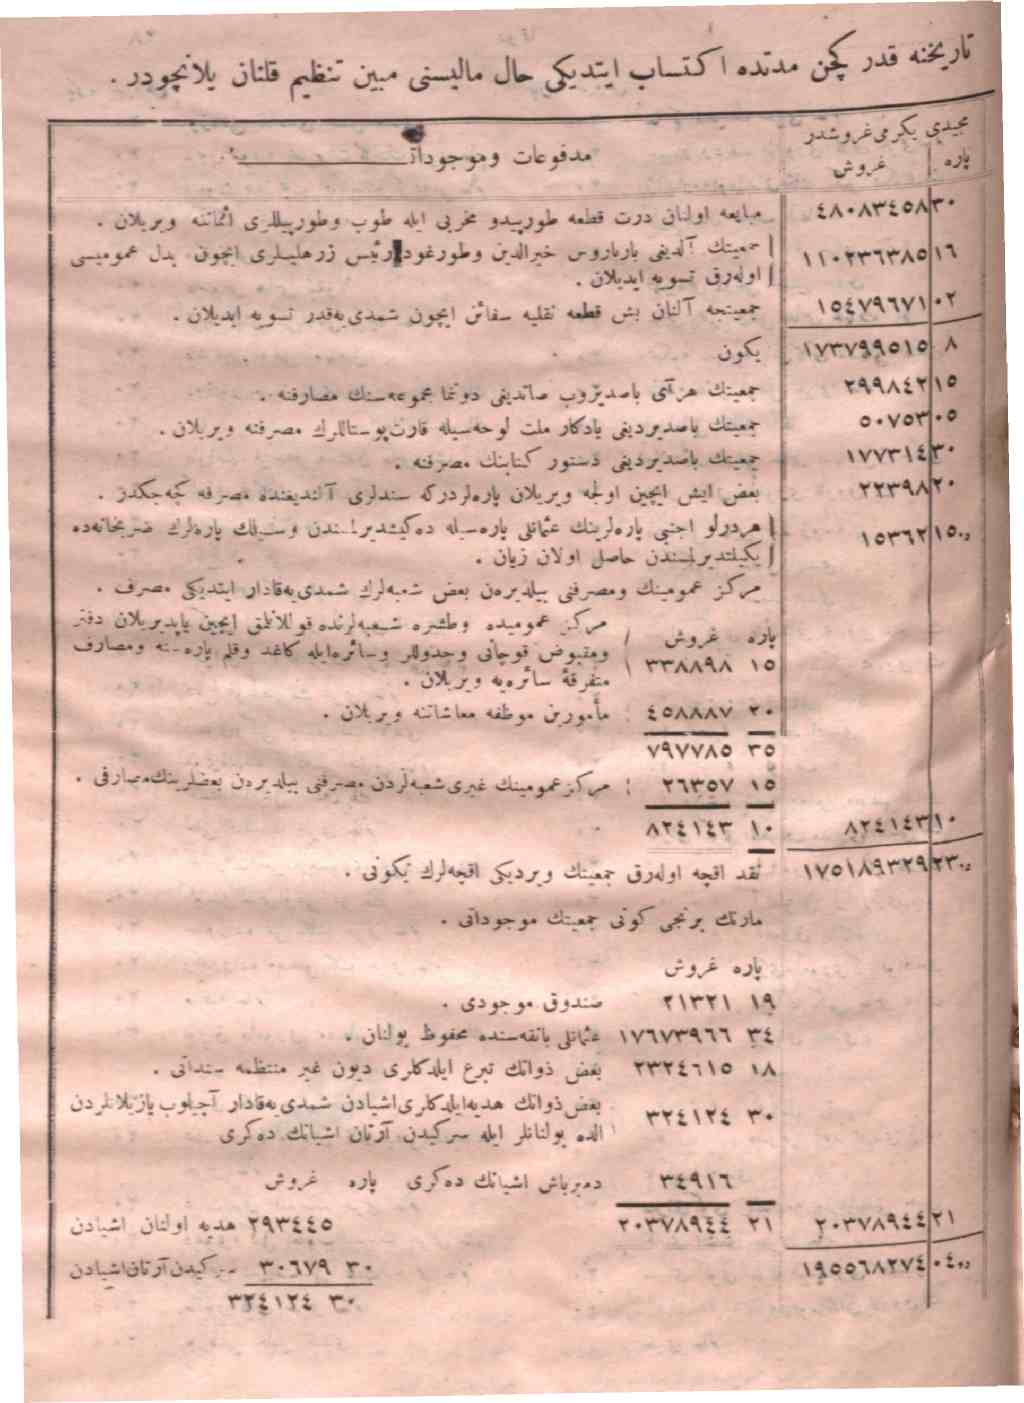 تاریخنه قدر کچن مدتده اکتساب ایتدیکی حال مالیسنی مبین تنظیم قلنان پلانچودر .
مجیدی یکرمی غروشدر
پاره غروش
مدفوعات وموجودات
٤٨٠٨٣٤٥٨ ٣٠ مبایعه اولنان درت قطعه طورپیدو مخربی ایله طوپ وطورپیللری اثماننه ویریلان .
١١٠٢٣٦٣٨٥ ١٦ جمعیتك آلدیغی بارباروس خیرالدین وطورغود رئیس زرهلیلری ایچون بدل عمومیسی
اوله‌رق تسویه ایدیلان .
١٥٤٧٩٦٧١ ٠٢ جمعیتجه آلنان بش قطعه نقلیه سفائن ایچون شمدی‌یه‌قدر تسویه ایدیلان .
١٧٣٧٩٩٥١٥ ٨ یکون
٢٩٩٨٤٢ ١٥ جمعیتك هر آی باصدیروب صاتدیغی دونما مجموعه‌سنك مصارفنه .
٥٠٧٥٣ ٠٥ جمعیتك باصدیردیغی یادکار ملت لوحه‌سیله قارت‌پوستاللرك مصرفنه ویریلان .
١٧٧٣١٤ ٣٠ جمعیتك باصدیردیغی دستور کتابنك مصرفنه .
٢٢٣٩٨ ٢٠ بعض ایش ایچین اولجه ویریلان پاره‌لردرکه سندلری آلندیغنده مصرفه کچه‌جکدر .
١٥٣٦٢ ١٥ هردرلو اجنبی پاره‌لرینك عثمانلی پاره‌سیله ده‌کیشدیرلمسندن وسیلیك پاره‌لرك ضربخانه‌ده
یکیلتدیرلمسندن حاصل اولان زیان .
مرکز عمومینك ومصرفنی بیلدیره‌ن بعض شعبه‌لرك شمدی‌یه‌قادار ایتدیکی مصرف .
پاره غروش
١٥ ٣٣٨٨٩٨ مرکز عمومیده وطشره شعبه‌لرنده قوللانلمق ایچین یاپدیریلان دفتر
ومقبوض قوچانی وجدوللر وسائره‌ایله کاغد وقلم پاره‌سنه ومصارف
متفرقهٔ سائره‌یه ویریلان .
٢٠ ٤٥٨٨٨٧ مأمورین موظفه معاشاتنه ویریلان .
٣٥ ٧٩٧٧٨٥
١٥ ٢٦٣٥٧ مرکز عمومینك غیری شعبه‌لردن مصرفنی بیلدیره‌ن بعضلرینك مصارفی .
٨٢٤١٤٣ ١٠ ١٠ ٨٢٤١٤٣
١٧٥١٨٩٣٢٩ ٢٣ نقد اقچه اوله‌رق جمعیتك ویردیکی اقچه‌لرك یکونی .
مارتك برنجی کونی جمعیتك موجوداتی .
پاره غروش
١٩ ٢١٣٢١ صندوق موجودی .
٣٤ ١٧٦٧٣٩٦٦ عثمانلی بانقه‌سنده محفوظ بولنان .
١٨ ٢٣٢٤٦١٥ بعض ذواتك تبرع ایلدکلری دیون غیر منتظمه سنداتی .
٣٠ ٣٢٤١٢٤ بعض ذواتك هدیه ایلدکلری اشیادن شمدی‌یه‌قادار آچیلوب یازیلانلردن
الده بولنانلر ایله سرکیدن آرتان اشیانك ده‌کری
٣٤٩١٦ ده‌میرباش اشیانك ده‌کری پاره غروش
٢٠٣٧٨٩٤٤ ٢١ ٢١ ٢٠٣٧٨٩٤٤ ٢٩٣٤٤٥ هدیه اولنان اشیادن
١٩٥٥٦٨٢٧٤ ٠٤ ٣٠ ٣٠٦٧٩ سرکیدن آرتان اشیادن
٣٠ ٣٢٤١٢٤